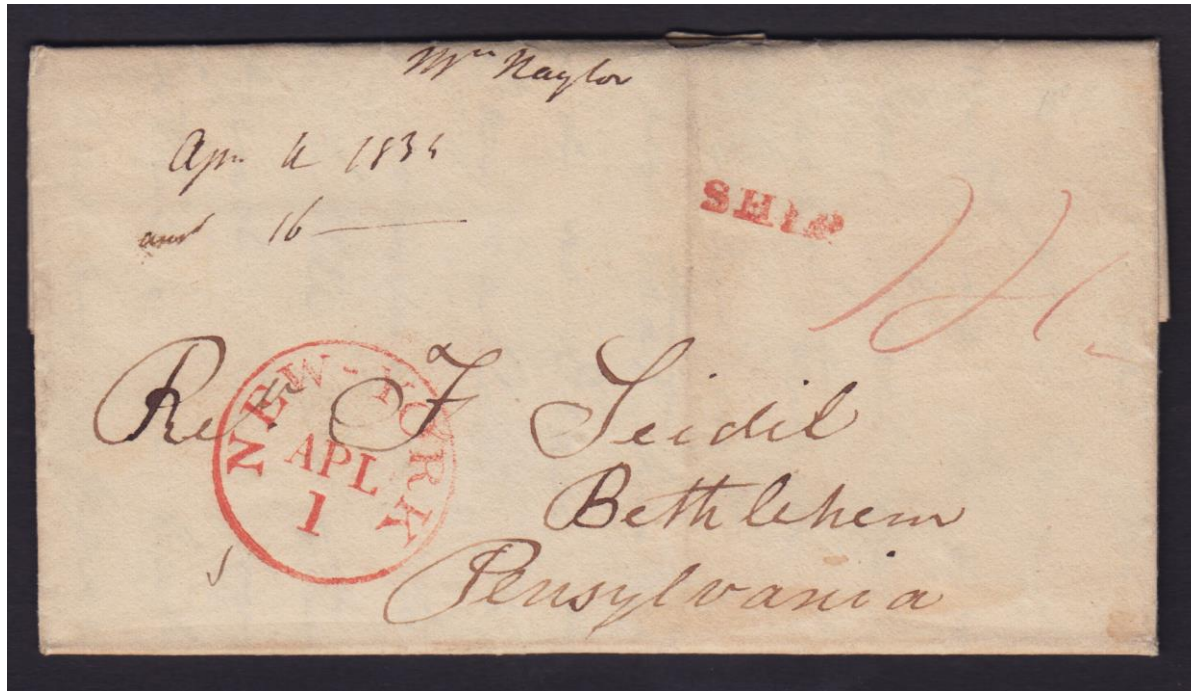 Mrs Naylor
Apr 4 1834
ansd 16
SHIP
Revd F Seidil
Bethlehem
Pensylvania
NEW-YORK
APL
1